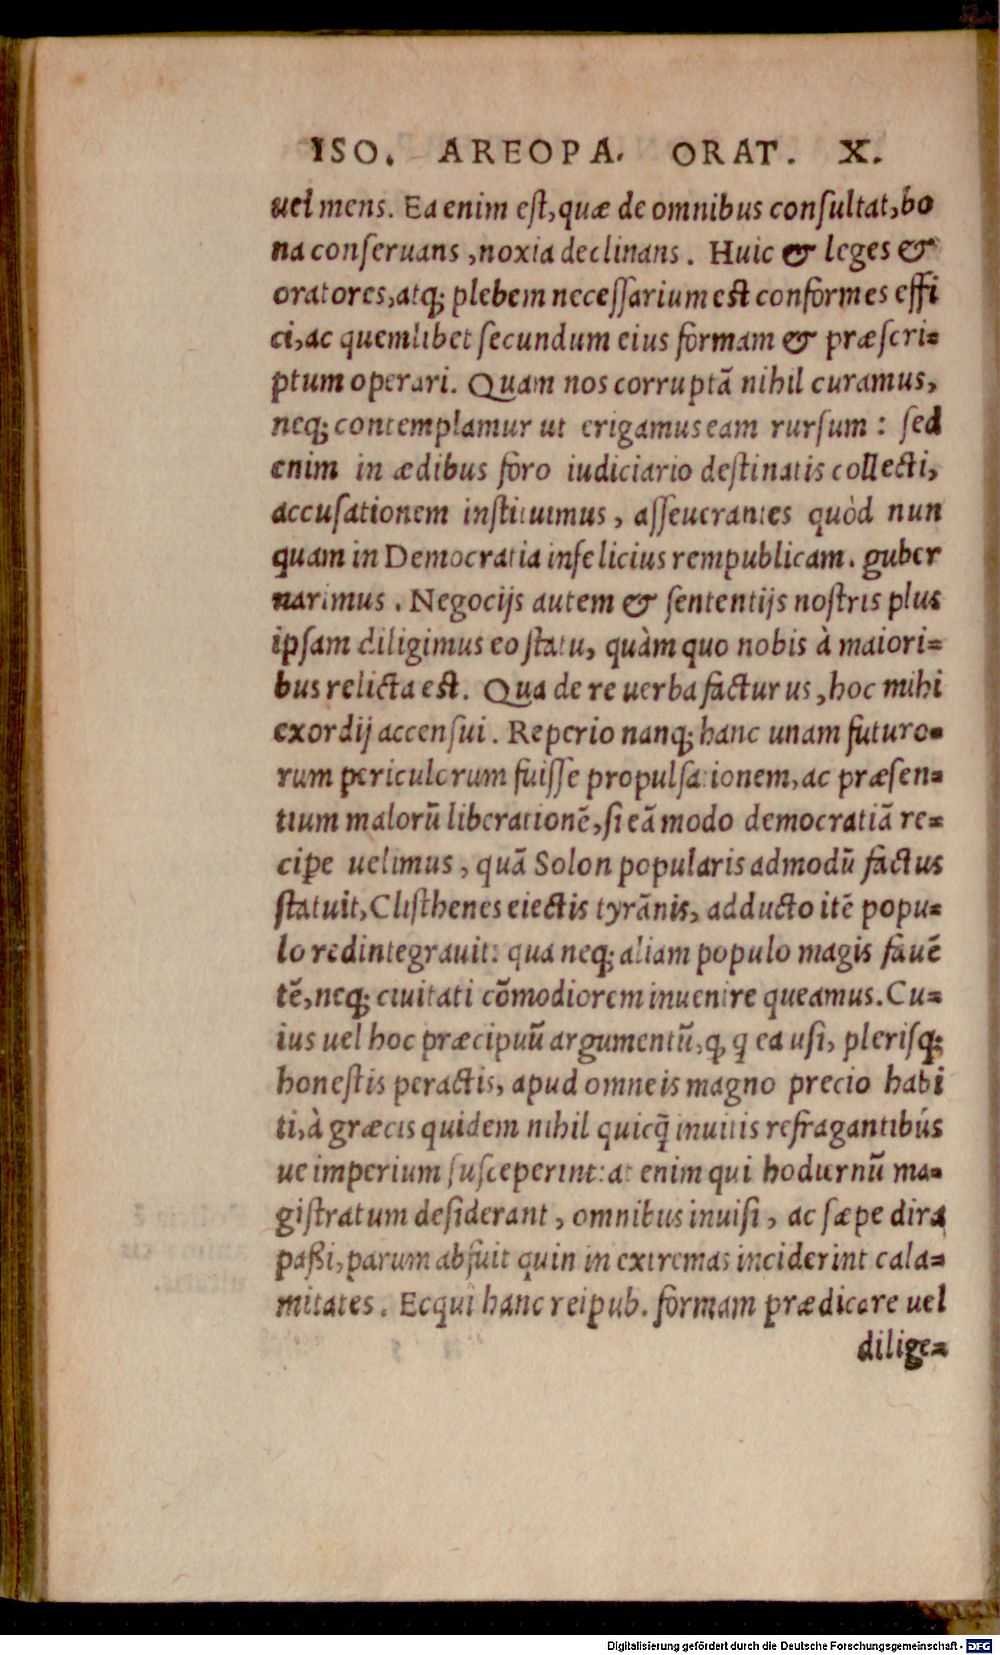 ISO. AREOPA. ORAT. X.
uel mens. Ea enim eſt, quæ de omnibus conſultat, bo
na conſeruans, noxia declinans. Huic & leges &
oratores, atq; plebem neceſſarium eſt conformes effi
ci, ac quemlibet ſecundum eius formam & præſcri=
ptum operari. Quam nos corruptā nihil curamus,
neq; contemplamur ut erigamus eam rurſum: ſed
enim in ædibus foro iudiciario deſtinatis collecti,
accuſationem inſtituimus, aſſeuerantes quòd nun
quam in Democratia infelicius rempublicam. guber
narimus. Negocijs autem & ſententijs noſtris plus
ipſam diligimus eo ſtatu, quàm quo nobis à maiori=
bus relicta eſt. Qua de re uerba facturus, hoc mihi
exordij accenſui. Reperio nanq; hanc unam futuro=
rum periculorum fuiſſe propulſationem, ac præſen=
tium malorū liberationē, ſi eā modo democratiā re=
cipe uelimus, quā Solon popularis admodū factus
ſtatuit, Cliſthenes eiectis tyrānis, adducto itē popu=
lo redintegrauit: qua neq; aliam populo magis fauē
tē, neq; ciuitati cōmodiorem inuenire queamus. Cu=
ius uel hoc præcipuū argumentū, q, q ea uſi, pleriſq;
honeſtis peractis, apud omneis magno precio habi
ti, à græcis quidem nihil quicq̃ inuitis refragantibús
ue imperium ſuſceperint: at enim qui hodiernū ma=
giſtratum deſiderant, omnibus inuiſi, ac ſæpe dira
paßi, parum abfuit quin in extremas inciderint cala=
mitates. Ecqui hanc reipub. formam prædicare uel
dilige=
Digitalisierung gefördert durch die Deutsche Forschungsgemeinschaft - DFG